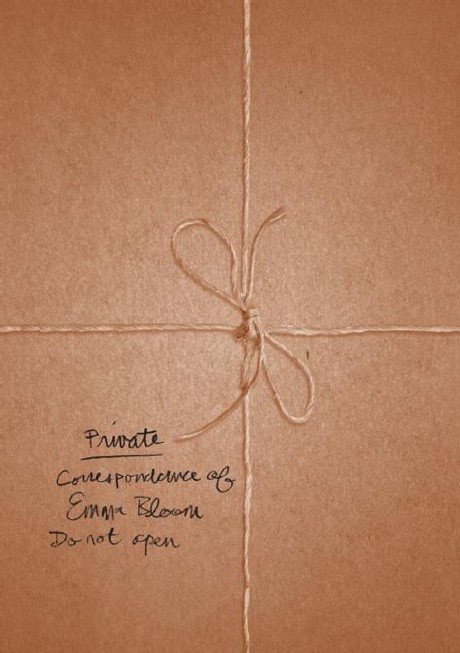 Private
Correspondence of
Emma Bloom
Do not open